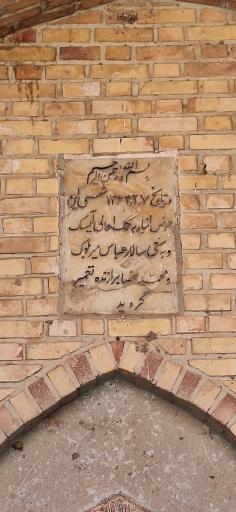 بسم الله الرحمن الرحیم
در تاریخ ۱۳۶۴/۲/۷ شمسی این
حوض انبار به کمک اهالی آبسک
و به سعی سالار عباس میربلوک
و محمد برازنده تعمیر
گردید